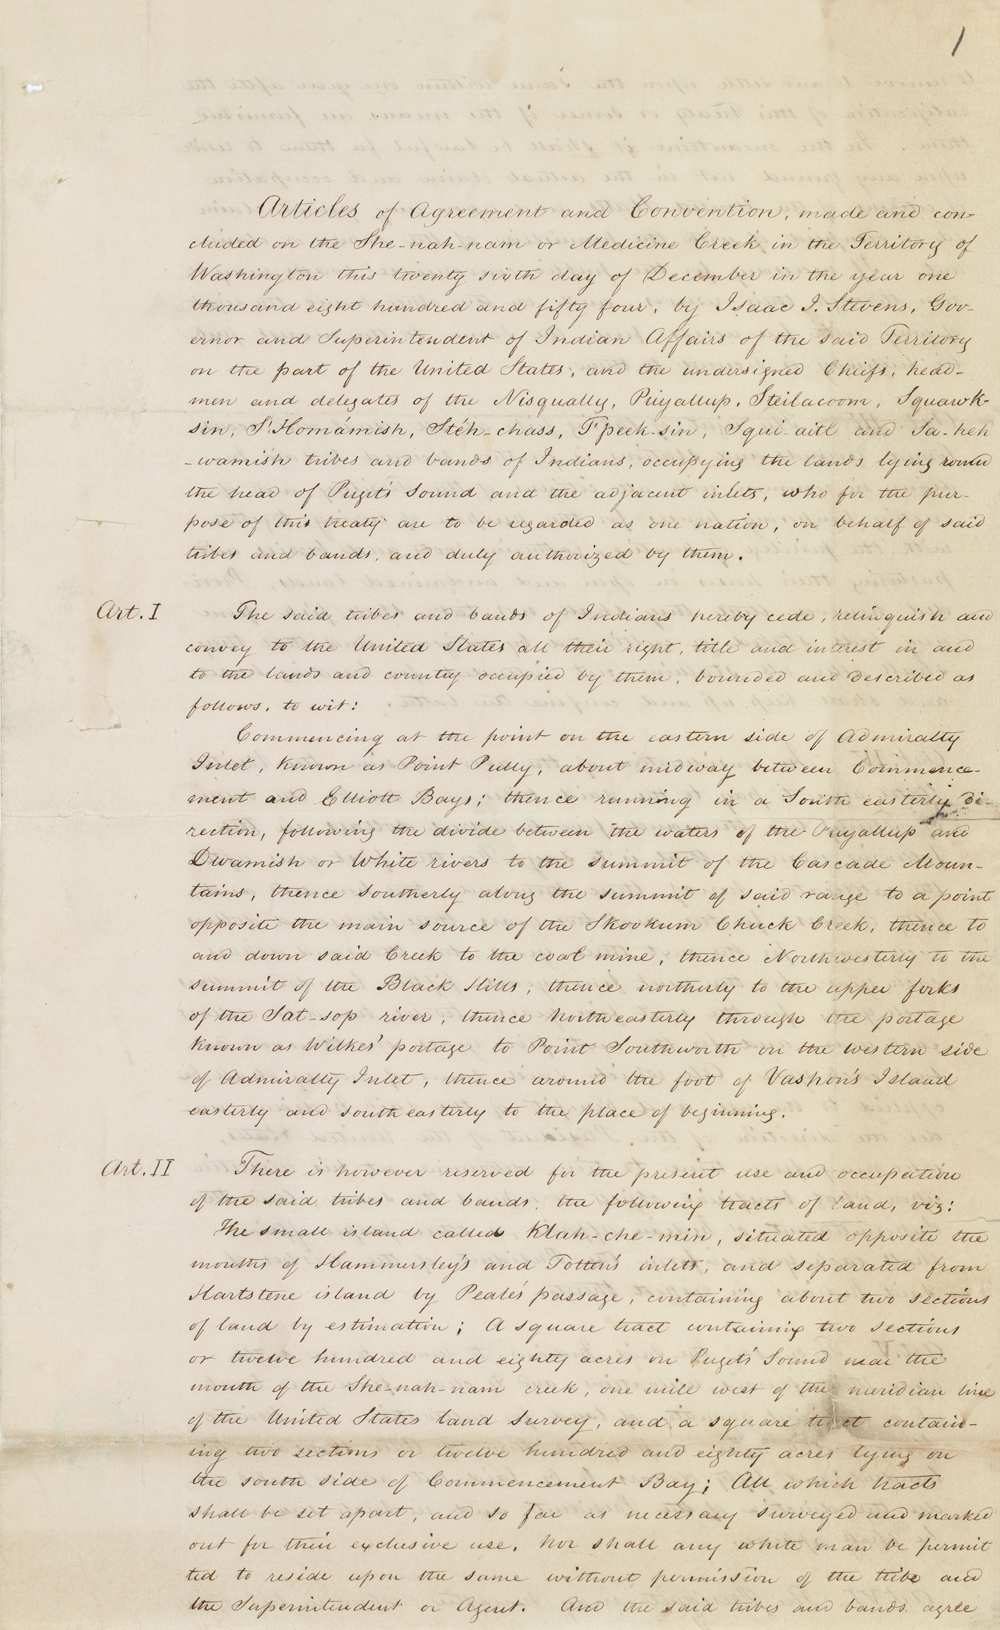 1
Articles of Agreement and Convention, made and con-
cluded on the She-nah-nam or Medicine Creek in the Territory of
Washington this twenty sixth day of December in the year one
thousand eight hundred and fifty four, by Isaac I. Stevens, Gov-
ernor and Superintendent of Indian Affairs of the said Territory
on the part of the United States, and the undersigned Chiefs, head-
men and delegates of the Nisqually, Puyallup, Steilacoom, Squawk-
sin, S'Homamish, Stéh-chass, T'peek-sin, Squi-aitl and Sa-heh
-wamish tribes and bands of Indians, occupying the lands lying round
the head of Puget's Sound and the adjacent inlets, who for the pur-
pose of this treaty are to be regarded as one nation, on behalf of said
tribes and bands, and duly authorized by them.
Art. I The said tribes and bands of Indians hereby cede, relinquish and
convey to the United States all their right, title and interest in and
to the lands and country occupied by them, bounded and described as
follows, to wit:
Commencing at the point on the eastern side of Admiralty
Inlet, known as Point Pully, about midway between Commence-
ment and Elliott Bays; thence running in a South easterly di-
rection, following the divide between the waters of the Puyallup and
Dwamish or White rivers to the summit of the Cascade Moun-
tains, thence southerly along the summit of said range to a point
opposite the main source of the Skookum Chuck Creek, thence to
and down said Creek to the coal mine, thence Northwesterly to the
summit of the Black Hills, thence northerly to the upper forks
of the Sat-sop river, thence northeasterly through the portage
known as Wilkes' portage to Point Southworth on the western side
of Admiralty Inlet, thence around the foot of Vashon's Island
easterly and south easterly to the place of beginning.
Art. II There is however reserved for the present use and occupation
of the said tribes and bands, the following tracts of land, viz:
The small island called Klah-che-min, situated opposite the
mouths of Hammersley's and Totten's inlets, and separated from
Hartstene island by Peale's passage, containing about two sections
of land by estimation; A square tract containing two sections
or twelve hundred and eighty acres on Puget's Sound near the
mouth of the She-nah-nam creek, one mile west of the meridian line
of the United States land survey, and a square tract contain-
ing two sections or twelve hundred and eighty acres lying on
the south side of Commencement Bay; All which tracts
shall be set apart, and so far as necessary surveyed and marked
out for their exclusive use, nor shall any white man be permit
ted to reside upon the same without permission of the tribe and
the Superintendent or Agent. And the said tribes and bands agree